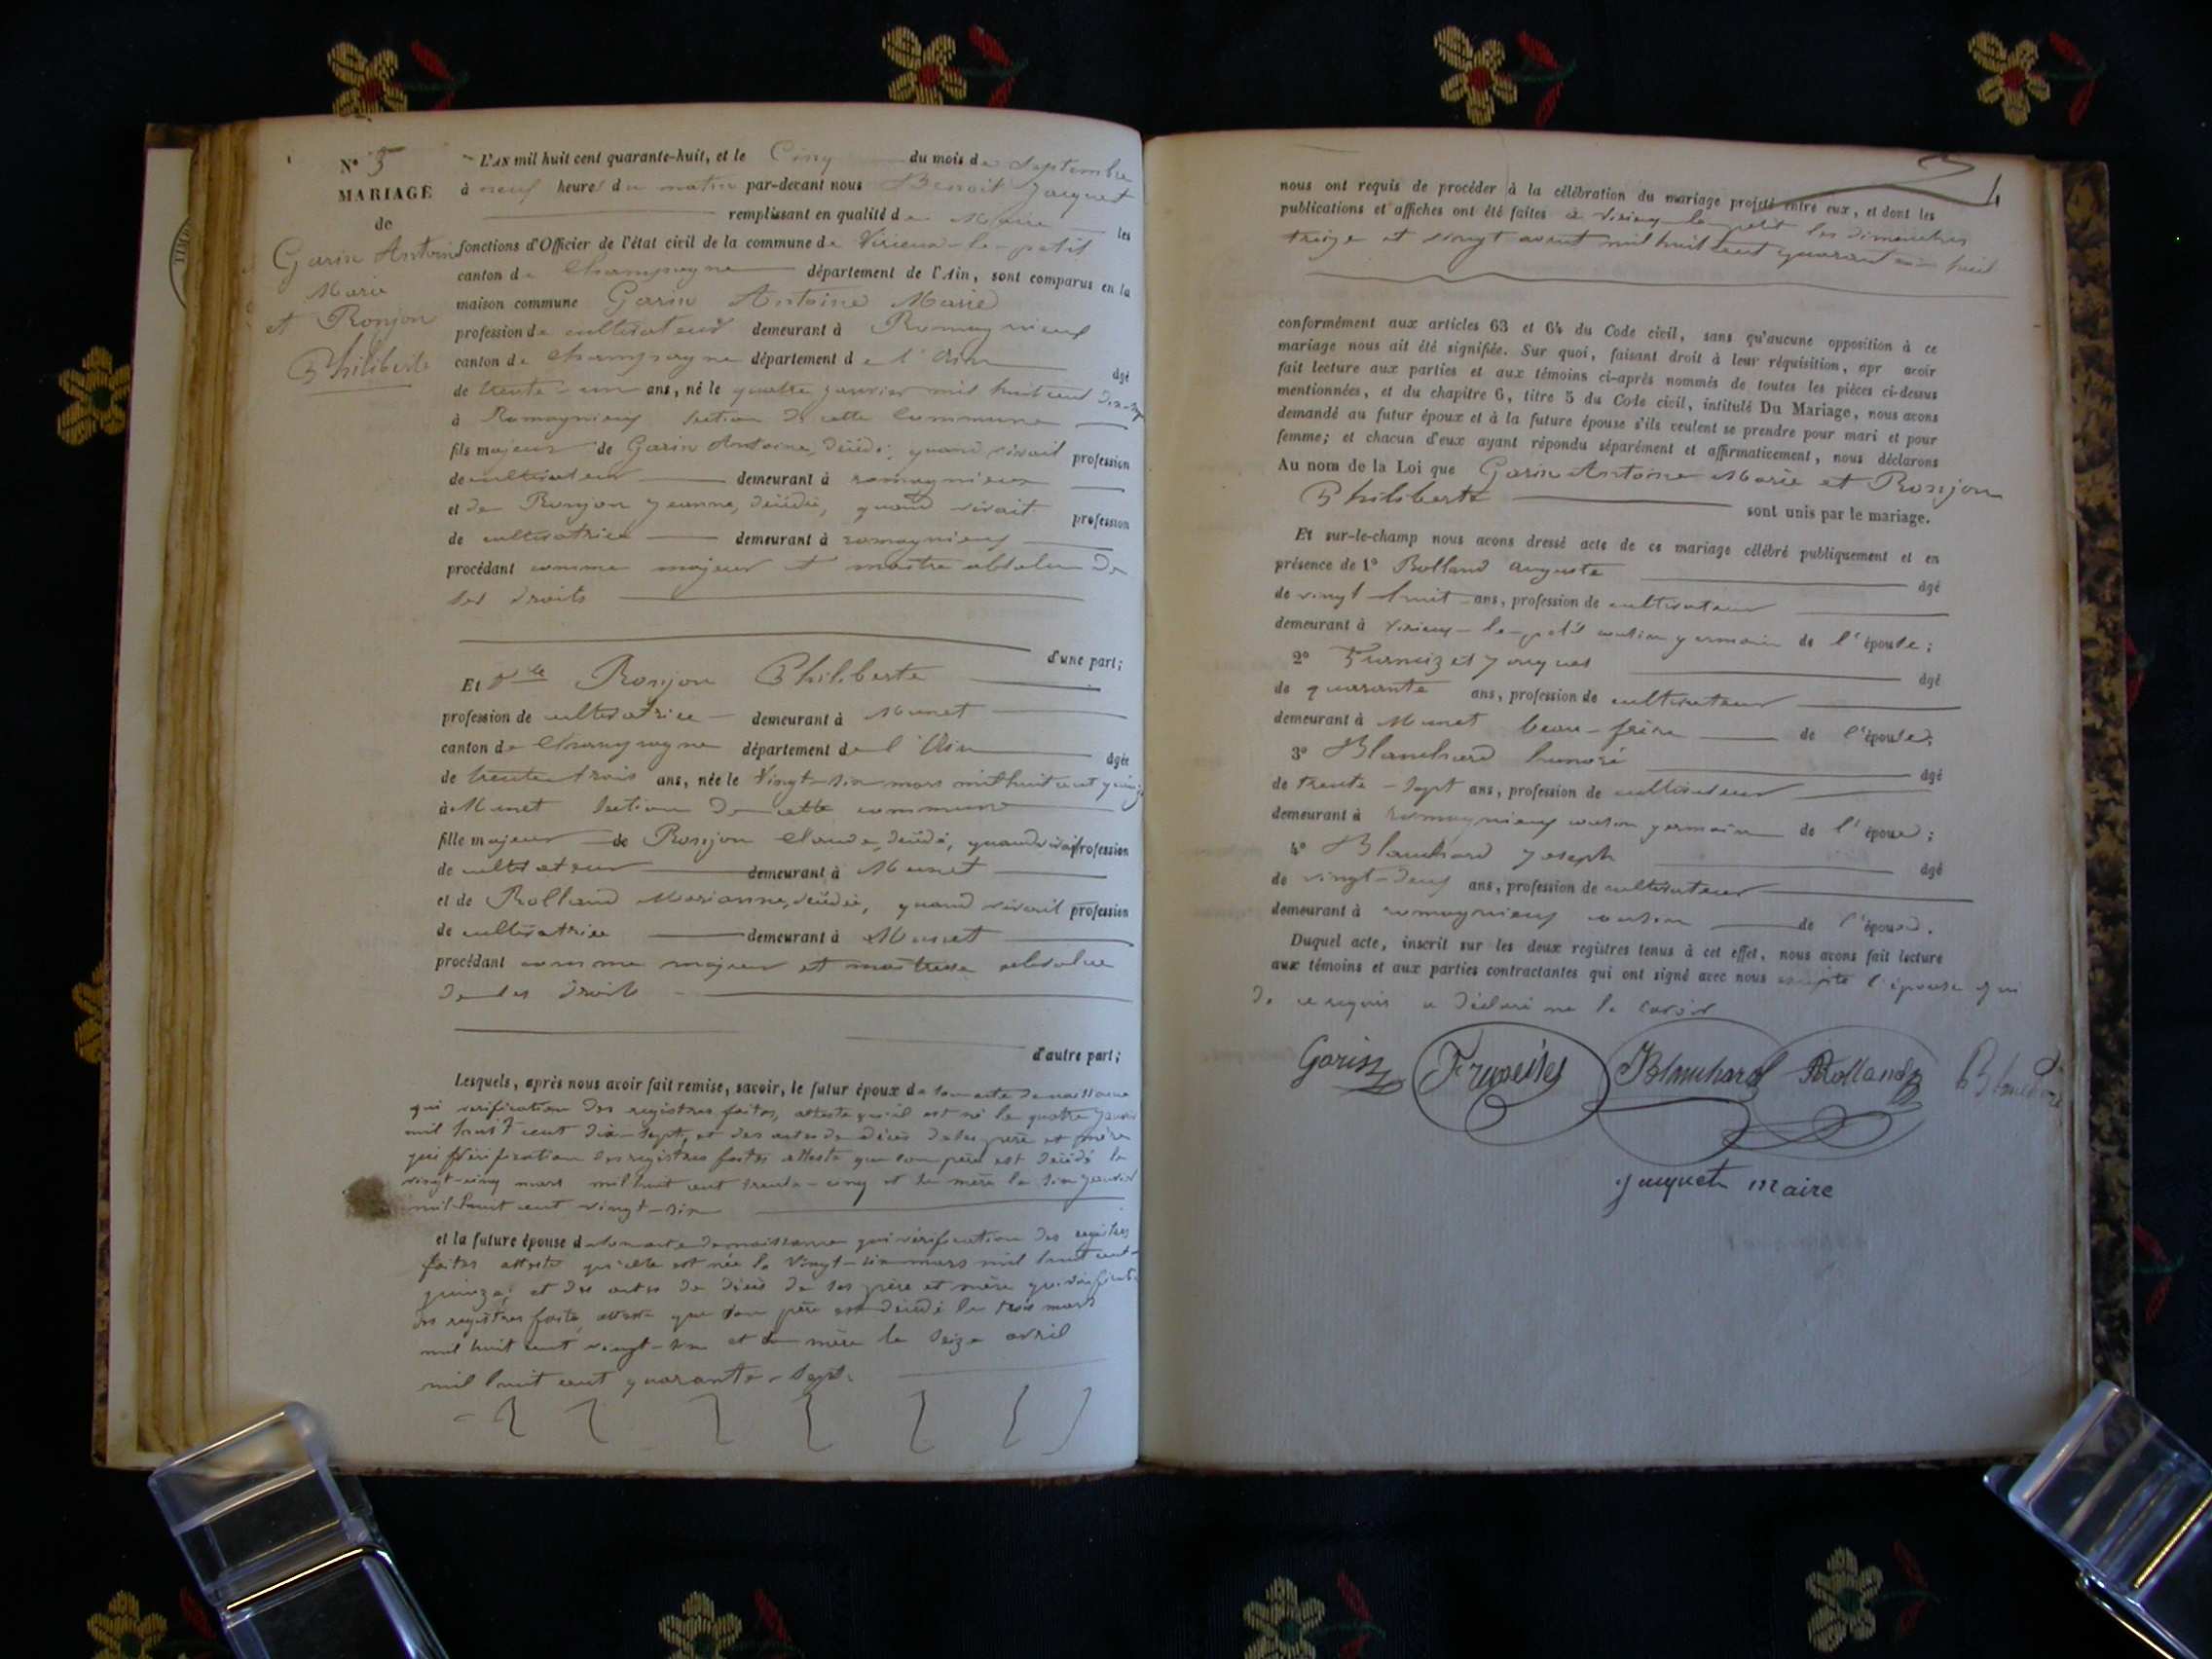 N° 3
MARIAGE
de
Garin Antoine
Marie
et Ronjon
Philiberte
L'AN mil huit cent quarante-huit, et le Cinq du mois de Septembre
à neuf heures du matin par-devant nous Benoit Jacquet
remplissant en qualité de Maire les
fonctions d'Officier de l'état civil de la commune de Virieux-le-petit
canton de Champagne département de l'Ain, sont comparus en la
maison commune Garin Antoine Marie
profession de cultivateur demeurant à Romagnieux
canton de Champagne département de l'Ain âgé
de trente-un ans, né le quatre janvier mil huit cent dix-sept
à Romagnieux section de cette Commune
fils majeur de Garin Antoine, décédé, quand vivait profession
de cultivateur demeurant à romagnieux
et de Ronjon Jeanne, décédée, quand vivait profession
de cultivatrice demeurant à romagnieux
procédant comme majeur et maître absolu de
ses droits
d'une part;
Et Dlle Ronjon Philiberte
profession de cultivatrice demeurant à Munet
canton de Champagne département de l'Ain âgée
de trente trois ans, née le Vingt-six mars mil huit cent quinze
à Munet section de cette commune
fille majeur de Ronjon Claude, décédé, quand vivait profession
de cultivateur demeurant à Munet
et de Rolland Marianne, décédée, quand vivait profession
de cultivatrice demeurant à Munet
procédant comme majeur et maitresse absolue
de ses droits
d'autre part;
Lesquels, après nous avoir fait remise, savoir, le futur époux de son acte de naissance
qui verification des registres faites, atteste qu'il est né le quatre janvier
mil huit cent dix-sept, et des actes de décès de ses père et mère
qui vérification des registres faites atteste que son père est décédé le
vingt-cinq mars mil huit cent trente-cinq et sa mère le six janvier
mil huit cent vingt-six
et la future épouse de son acte de naissance qui vérification des registres
faites atteste qu'elle est née le Vingt-six mars mil huit cent
quinze, et des actes de décès de ses père et mère qui vérification
des registres faite, atteste que son père est décédé le trois mars
mil huit cent vingt-six et sa mère le seize avril
mil huit cent quarante-sept.
4
nous ont requis de procéder à la célébration du mariage projeté entre eux, et dont les
publications et affiches ont été faites à Virieux-le-petit les dimanches
treize et vingt aout mil huit cent quarante-huit
conformément aux articles 63 et 64 du Code civil, sans qu'aucune opposition à ce
mariage nous ait été signifiée. Sur quoi, faisant droit à leur réquisition, apr avoir
fait lecture aux parties et aux témoins ci-après nommés de toutes les pièces ci-dessus
mentionnées, et du chapitre 6, titre 5 du Code civil, intitulé Du Mariage, nous avons
demandé au futur époux et à la future épouse s'ils veulent se prendre pour mari et pour
femme; et chacun d'eux ayant répondu séparément et affirmativement, nous déclarons
Au nom de la Loi que Garin Antoine Marie et Ronjon
Philiberte sont unis par le mariage.
Et sur-le-champ nous avons dressé acte de ce mariage célébré publiquement et en
présence de 1° Rolland auguste âgé
de vingt-huit ans, profession de cultivateur
demeurant à Virieux-le-petit cousin germain de l'épouse;
2° Jacques âgé
de quarante ans, profession de cultivateur
demeurant à Munet beau-frère de l'épouse;
3° Blanchard honoré âgé
de trente-sept ans, profession de cultivateur
demeurant à romagnieux cousin germain de l'époux;
4° Blanchard Joseph âgé
de vingt-deux ans, profession de cultivateur
demeurant à romagnieux cousin de l'époux.
Duquel acte, inscrit sur les deux registres tenus à cet effet, nous avons fait lecture
aux témoins et aux parties contractantes qui ont signé avec nous excepté l'épouse qui
de ce requis a déclaré ne le savoir
Garin Blanchard Rolland Blanchard
Jacquet maire